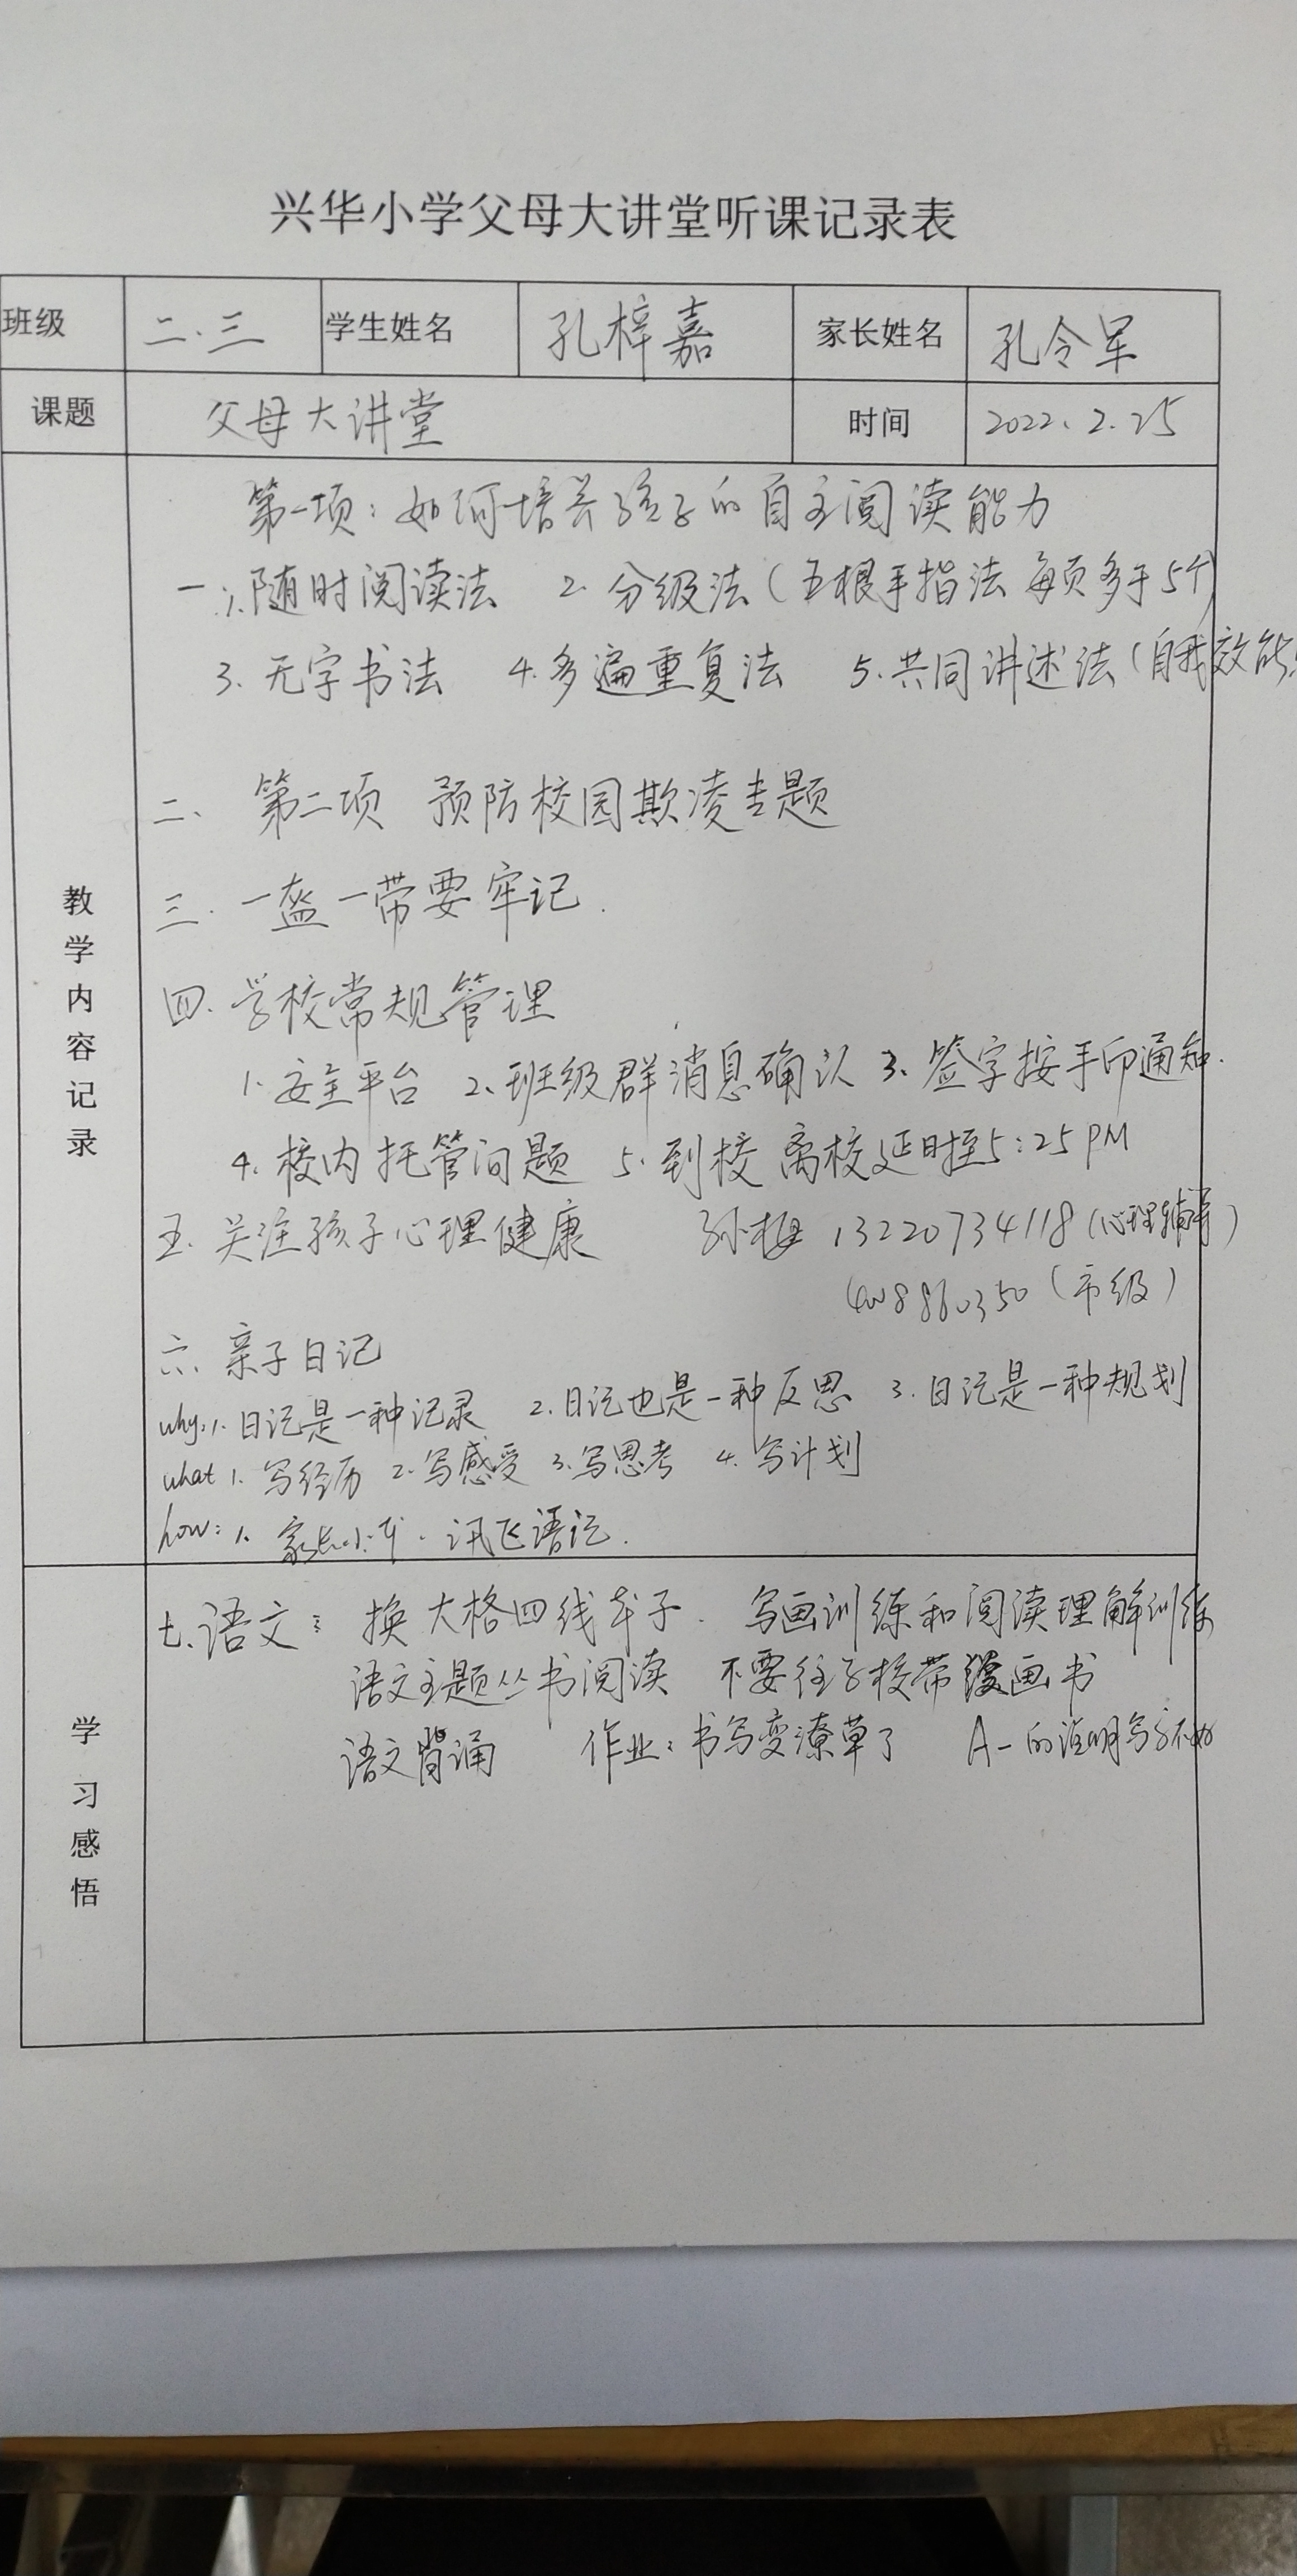 兴华小学父母大讲堂听课记录表
班级 二.三 学生姓名 孔梓嘉 家长姓名 孔令军
课题 父母大讲堂 时间 2022.2.25
教学内容记录
第一项:如何培养孩子的自主阅读能力
一、1.随时阅读法 2.分级法(五根手指法 每页多于5个)
3.无字书法 4.多遍重复法 5.共同讲述法(自我效能
二、第二项 预防校园欺凌专题
三.一盔一带要牢记.
四.学校常规管理
1.安全平台 2.班级群消息确认 3.签字按手印通知.
4.校内托管问题 5.到校 离校延时至5:25PM
五.关注孩子心理健康 孙梅 13220734118(心理辅导)
4008860350(市级)
六、亲子日记
why:1.日记是一种记录 2.日记也是一种反思 3.日记是一种规划
what 1.写经历 2.写感受 3.写思考 4.写计划
how:1. 讯飞语记.
学习感悟
七.语文: 换大格四线本子. 写画训练和阅读理解训练
语文主题丛书阅读 不要往学校带漫画书
语文背诵 作业:书写变潦草了 A-的说明写字不好